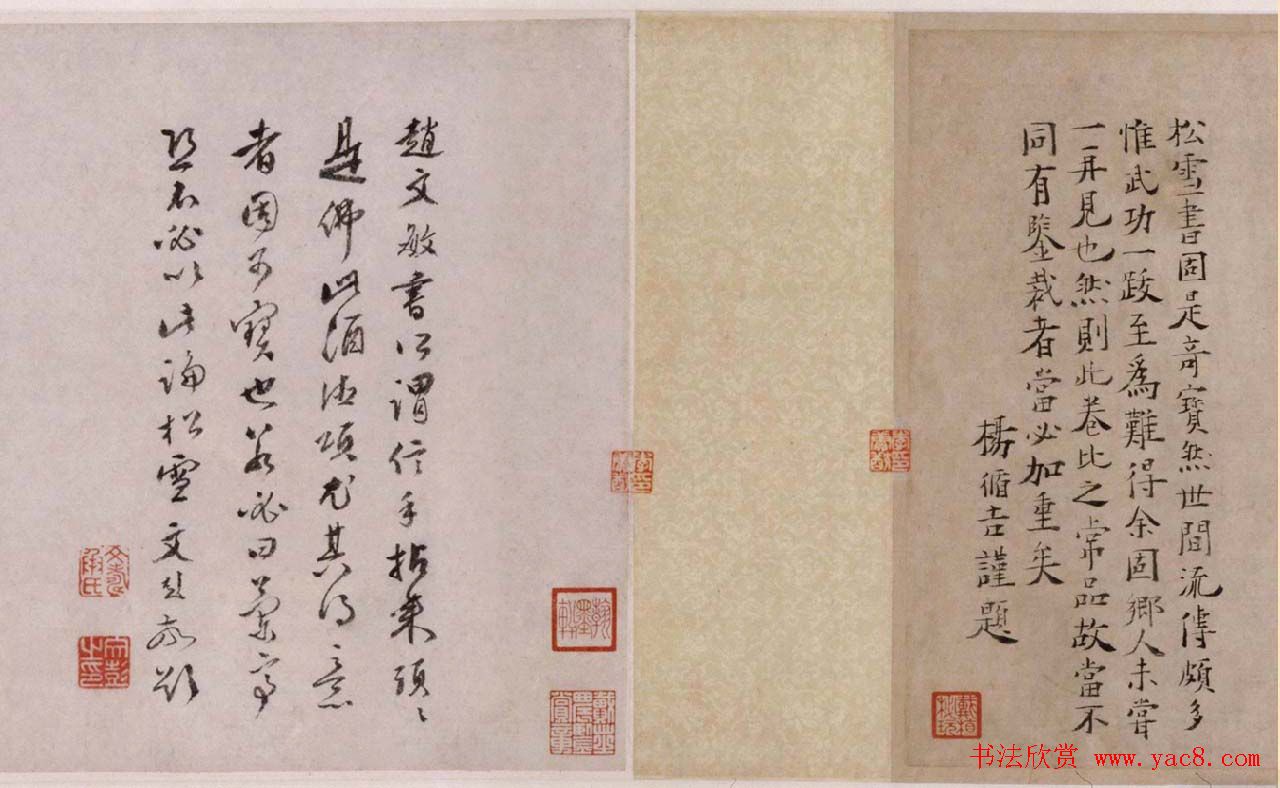 松雪書固是奇寶然世間流傳頗多
惟武功一跋至爲難得余固鄉人未嘗
一再見也然則此卷比之常品故當不
同有鑒裁者當必加重矣
楊循吉謹題
趙文敏書所謂信手拈來頭〻
是佛此酒德頌尤其得意
者固可寶也若必曰蘭亭
如此論松雪文
翰墨軒
文彭之印
书法欣赏 www.yac8.com